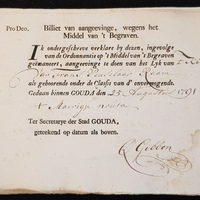 Pro Deo. Billiet van aangeevinge, wegens het
Middel van 't Begraven.
Ik ondergeschreve verklare by dezen, ingevolge
van de Ordonnantie op 't Middel van 't Begraven
geëmaneert, aangeevinge te doen van het Lyk van
als gehoorende onder de Classis van d' onvermogende.
Gedaan binnen GOUDA den 25 Augustus 1791
Ter Secretarye der Stad GOUDA,
geteekend op datum als boven.